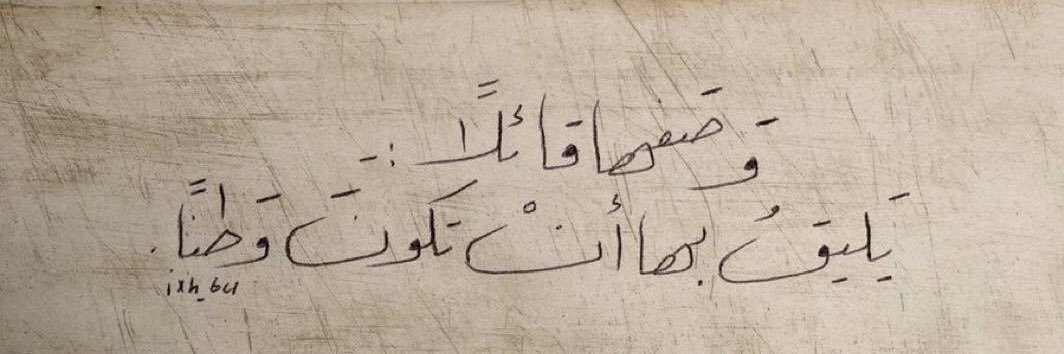 وَصَفها قائلًا :-
يَليقُ بها أنْ تكونَ وَطنًا.